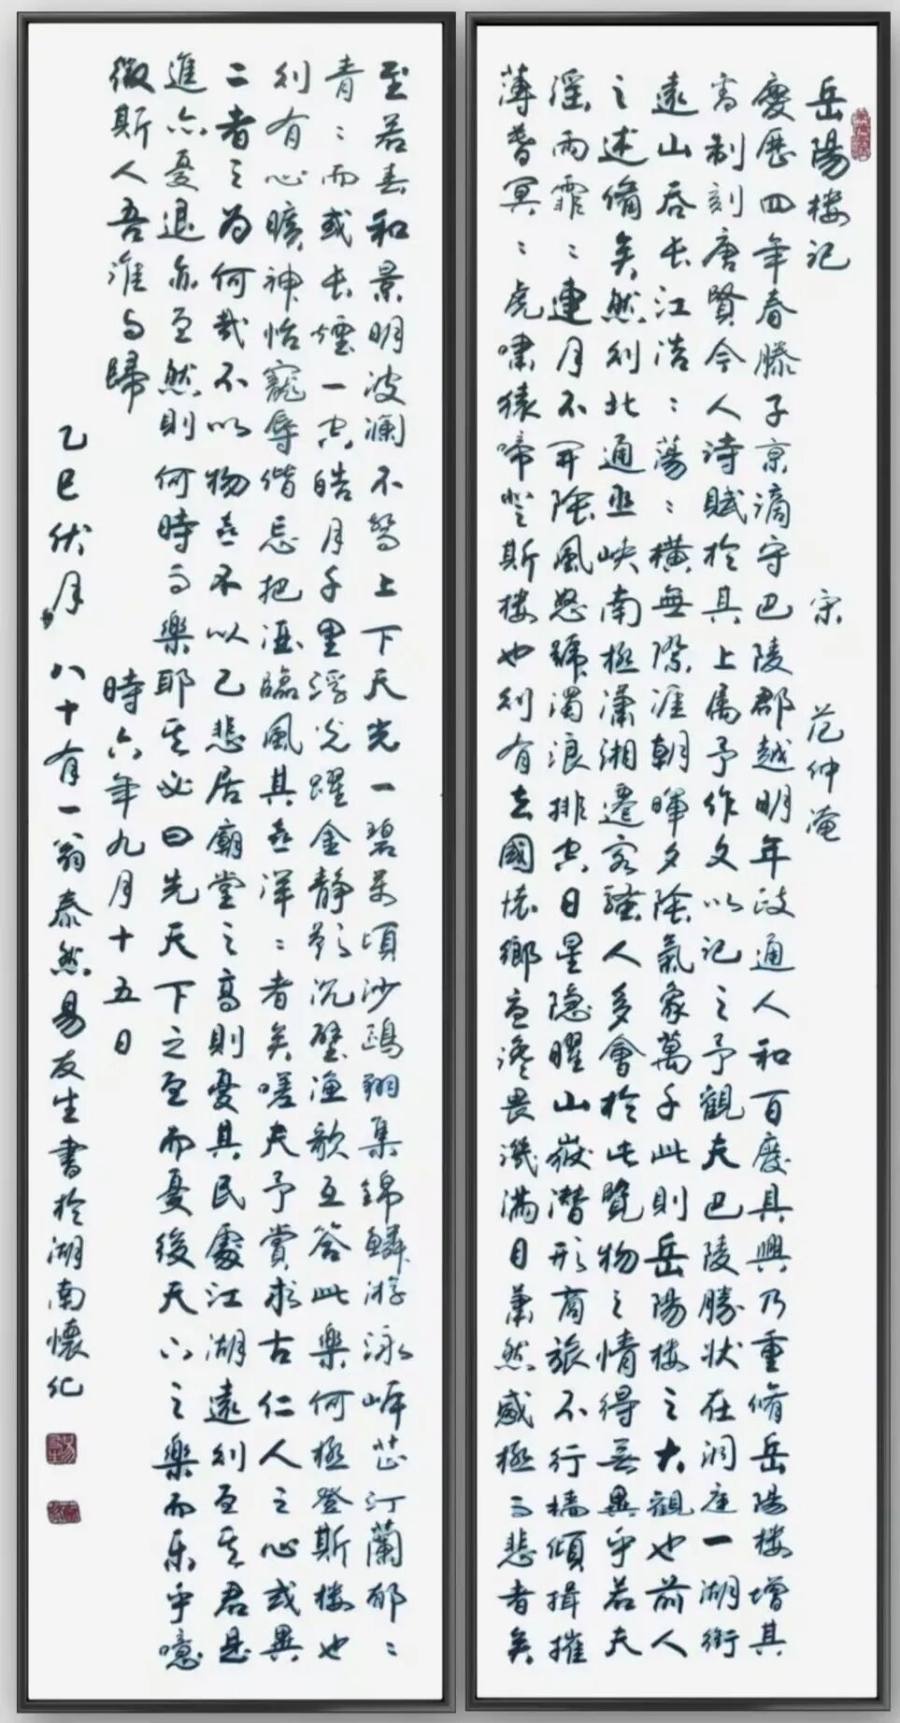 岳陽楼記
宋 范仲淹
慶歷四年春滕子京謫守巴陵郡越明年政通人和百廢具興乃重脩岳陽楼增其
舊制刻唐賢今人诗賦於其上屬予作文以记之予觀夫巴陵勝状在洞庭一湖銜
遠山吞长江浩〻蕩〻橫無際涯朝暉夕陰氣象萬千此則岳陽楼之大觀也前人
之述備矣然则北通巫峡南極瀟湘遷客騷人多會於此覽物之情得無異乎若夫
滛雨霏〻連月不開陰風怒號濁浪排空日星隐曜山嶽潛形商旅不行檣傾楫摧
薄暮冥〻虎嘯猿啼登斯楼也则有去國懷鄉憂讒畏譏滿目蕭然感極而悲者矣
至若春和景明波澜不驚上下天光一碧萬頃沙鷗翔集錦鱗游泳岸芷汀蘭郁〻
青〻而或长煙一空皓月千里浮光躍金靜影沉璧渔歌互答此樂何極登斯楼也
则有心曠神怡寵辱偕忘把酒臨風其喜洋〻者矣嗟夫予嘗求古仁人之心或異
二者之为何哉不以物喜不以己悲居廟堂之高則憂其民處江湖遠则憂其君是
進亦憂退亦憂然則何時而樂耶其必曰先天下之憂而憂後天下之樂而乐乎噫
微斯人吾誰与歸
時六年九月十五日
乙巳伏月 八十有一翁泰然易友生書於湖南懷化